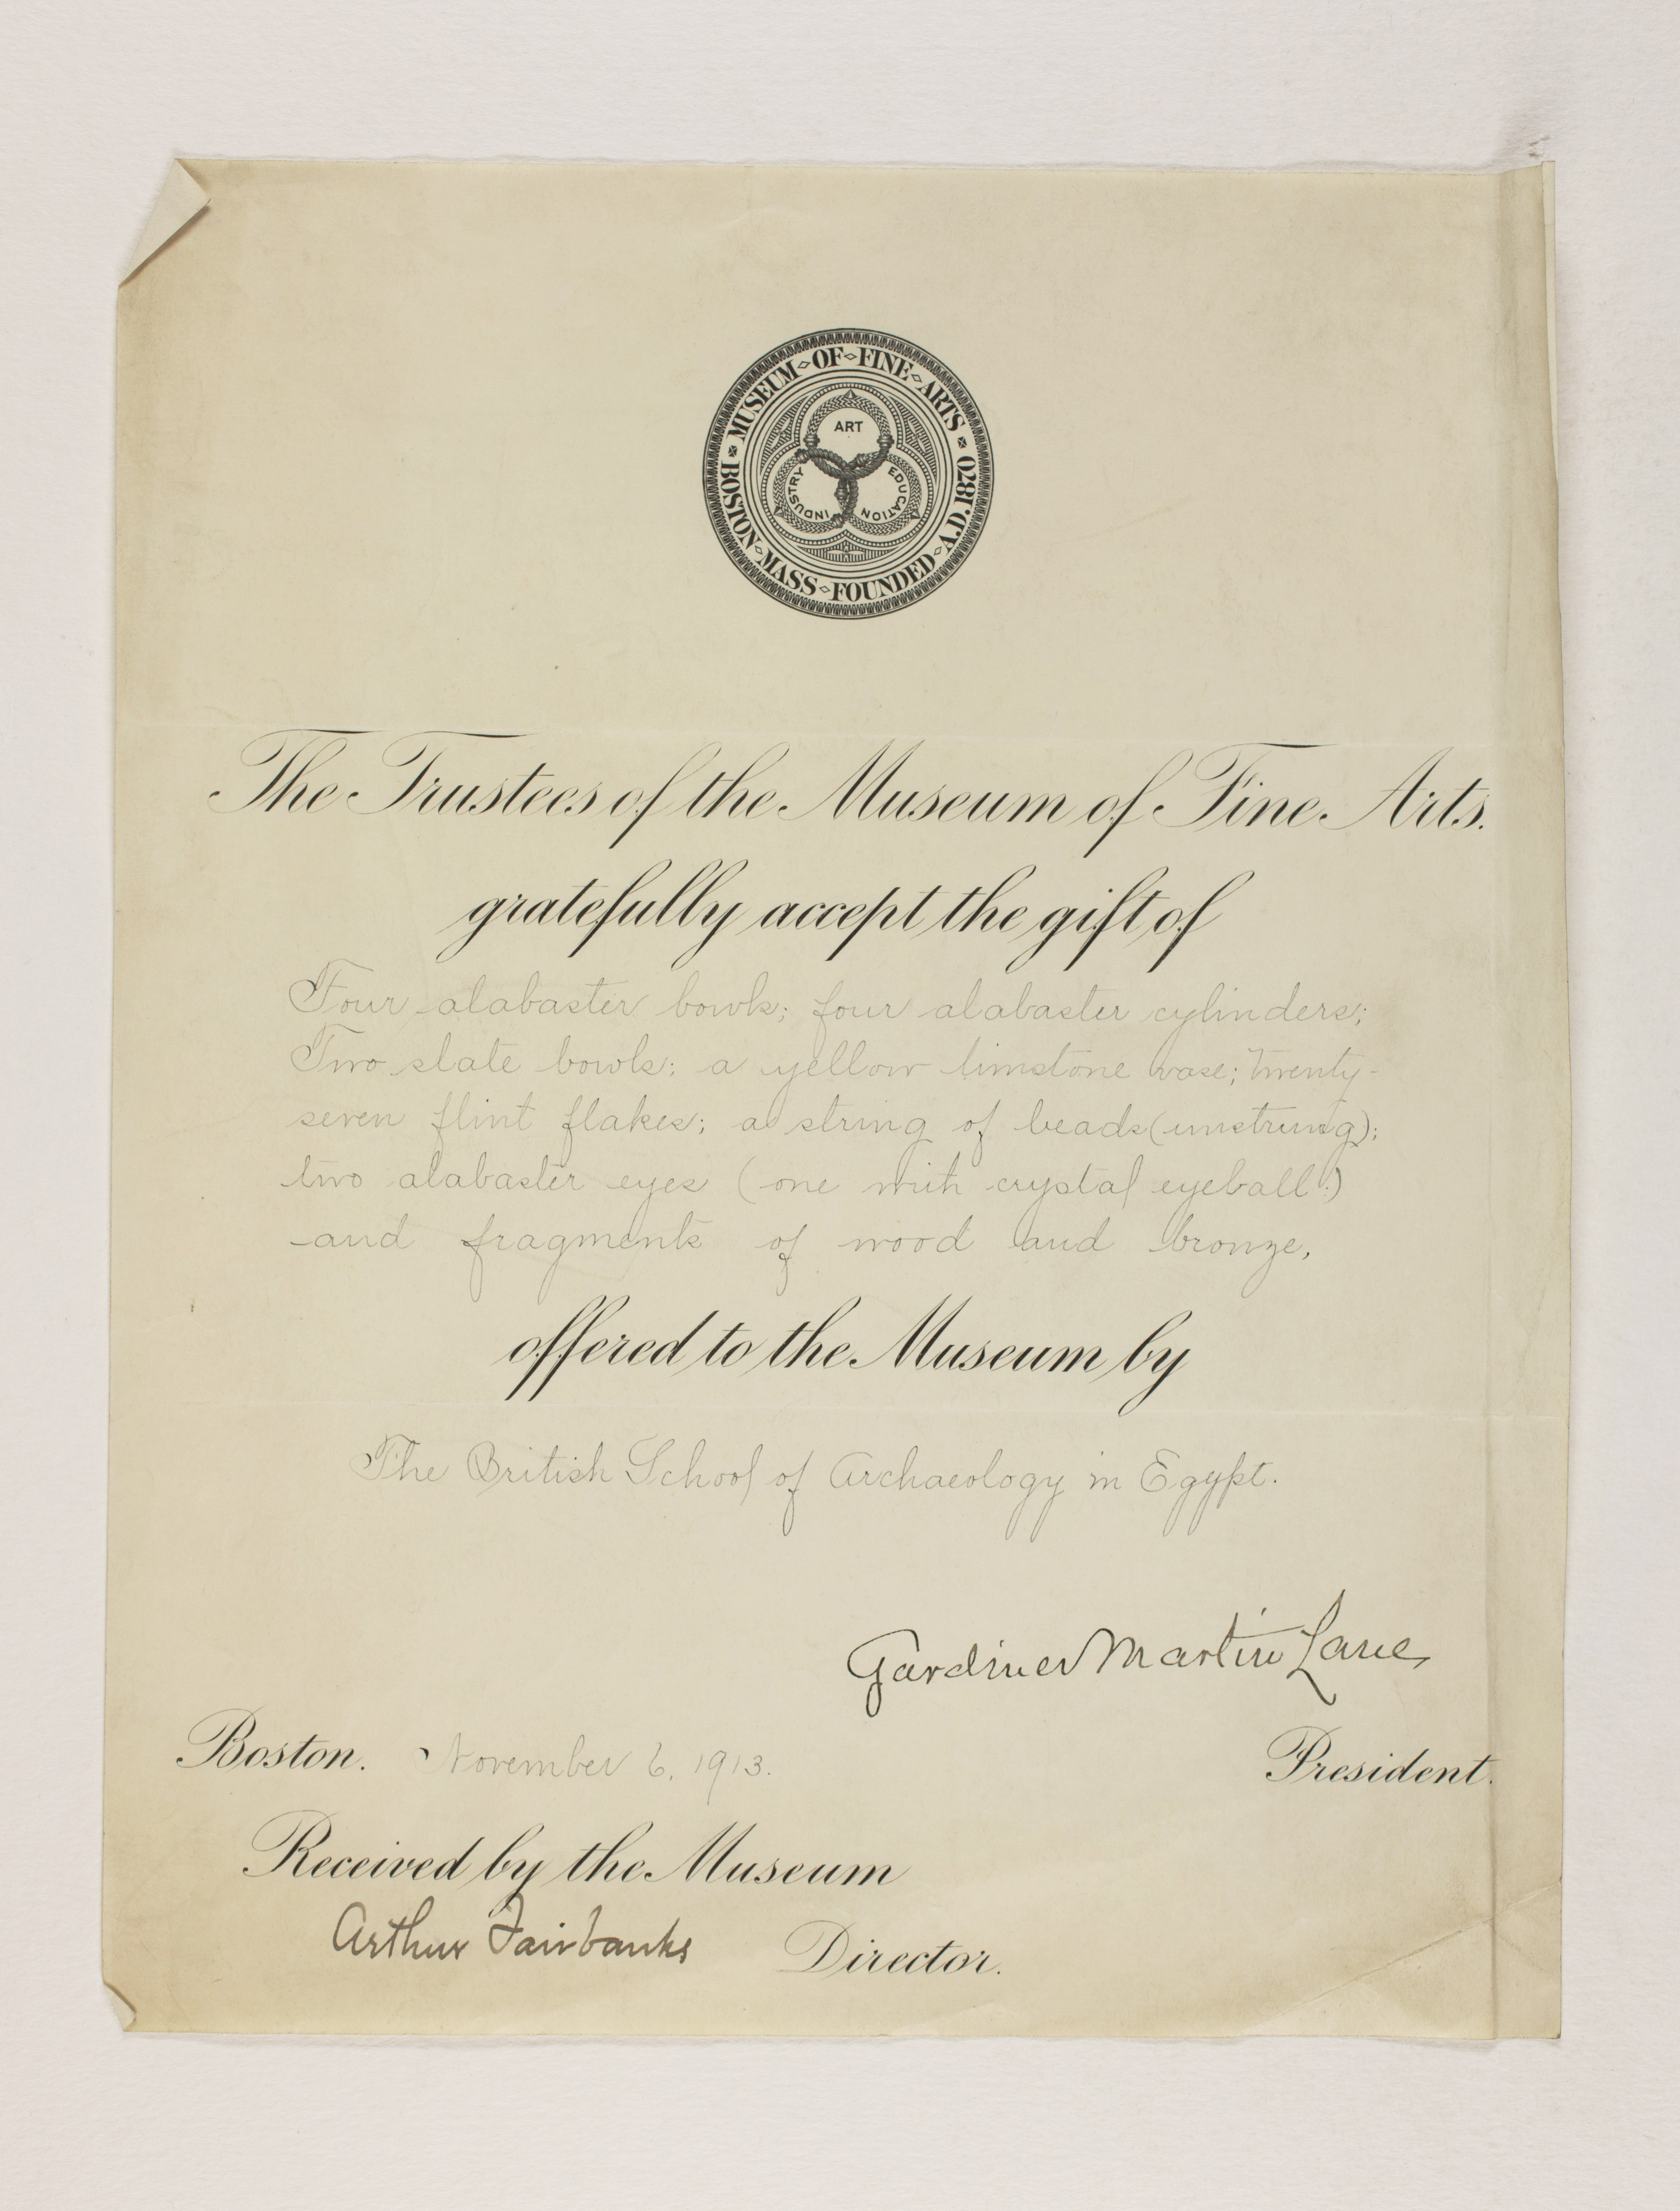 MUSEUM OF FINE ARTS
BOSTON MASS FOUNDED A.D. 1870
ART
INDUSTRY
EDUCATION
The Trustees of the Museum of Fine Arts.
gratefully accept the gift of
Four alabaster bowls; four alabaster cylinders;
Two slate bowls; a yellow limstone vase; twenty-
seven flint flakes; a string of beads (unstrung);
two alabaster eyes (one with crystal eyeball.)
and fragments of wood and bronze,
offered to the Museum by
The British School of Archaeology in Egypt.
Gardiner Martin Lane
Boston. November 6, 1913. President.
Received by the Museum
Arthur Fairbanks Director.